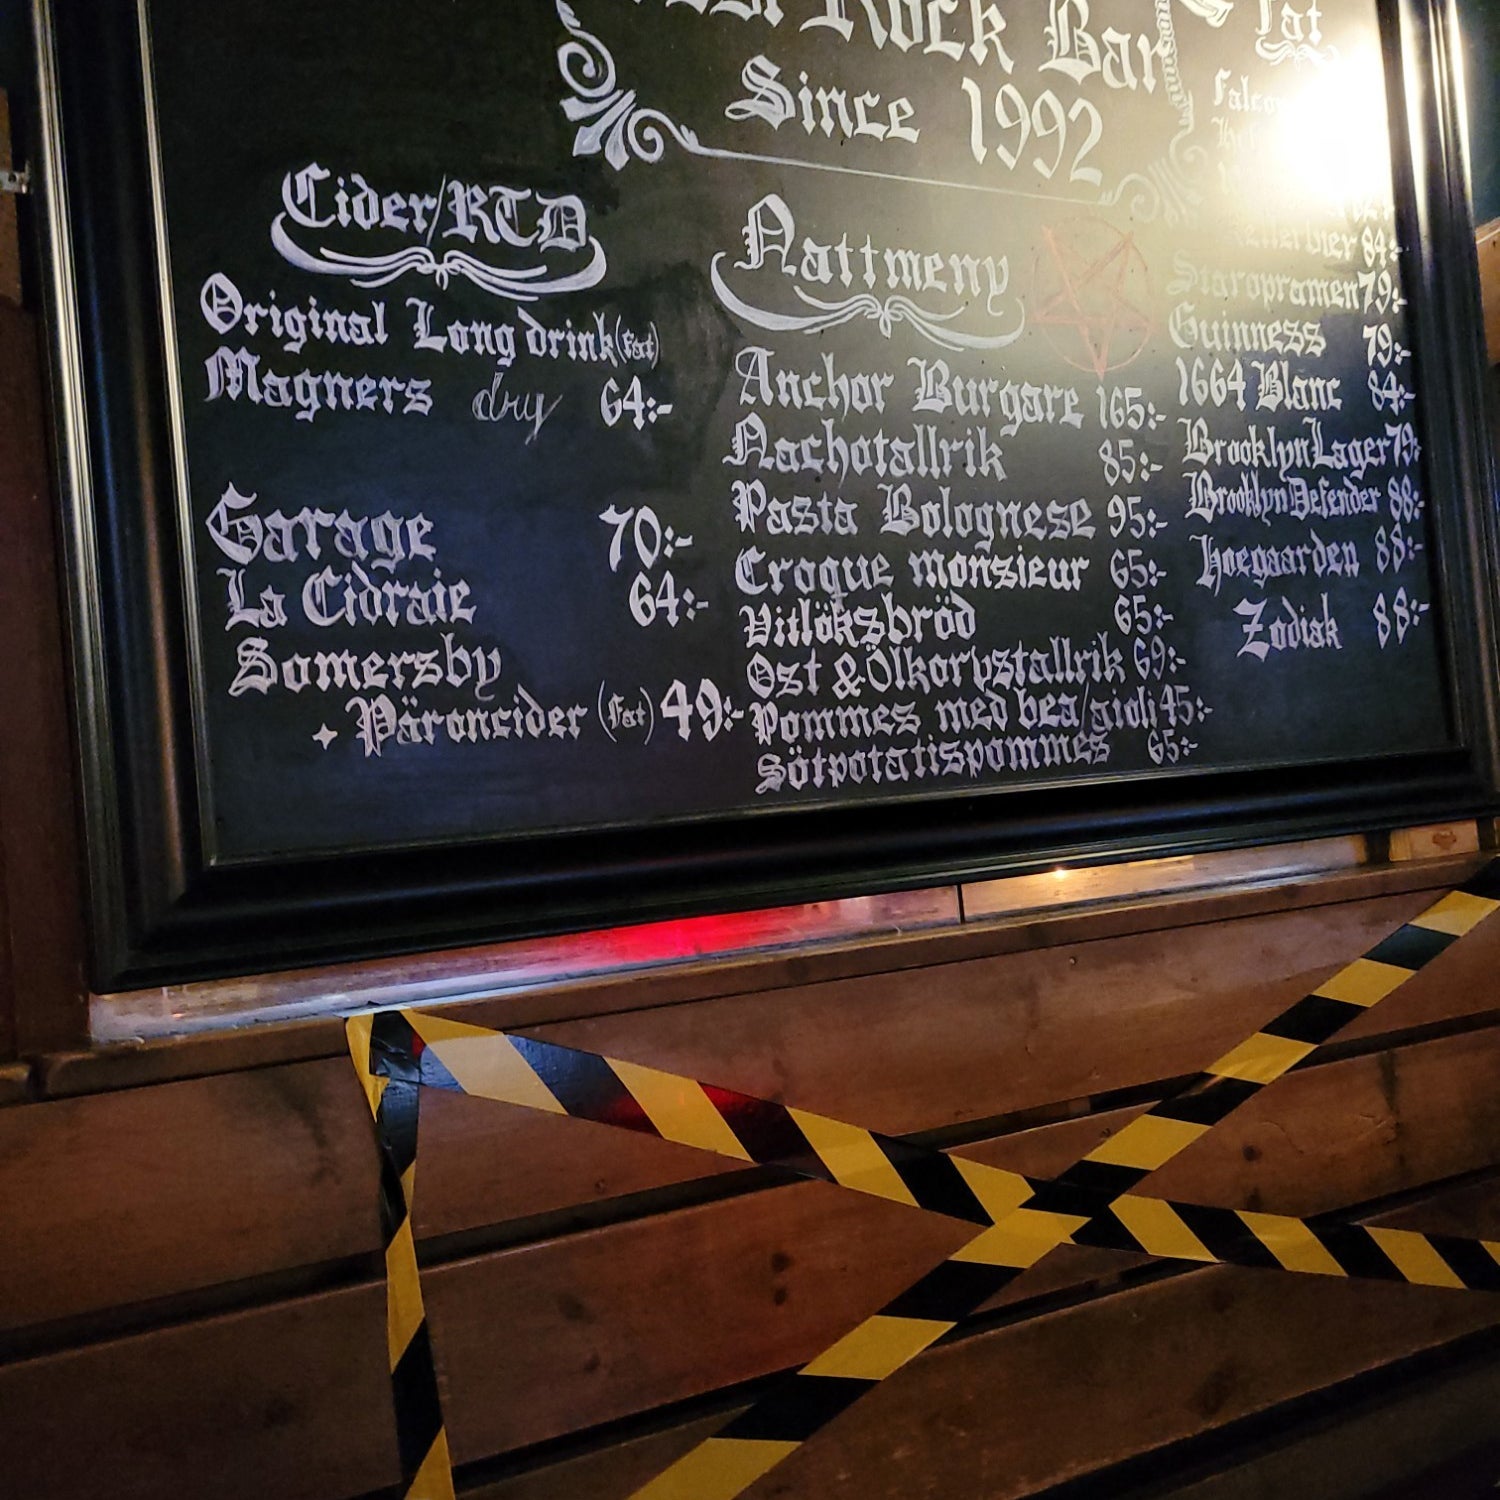 Rock Bar
Since 1992
Cider/RTD
Original Long drink (Fat)
Magners dry 64:-
Garage 70:-
La Cidraie 64:-
Somersby
Päroncider (Fat) 49:-
Nattmeny
Anchor Burgare 165:-
Nachotallrik 85:-
Pasta Bolognese 95:-
Croque monsieur 65:-
Vitlöksbröd 65:-
Ost & Ölkorvstallrik 69:-
Pommes med bea/aioli 45:-
Sötpotatispommes 65:-
Fat
84:-
Staropramen 79:-
Guinness 79:-
1664 Blanc 84:-
Brooklyn Lager 79:-
Brooklyn Defender 88:-
Hoegaarden 88:-
Zodiak 88:-